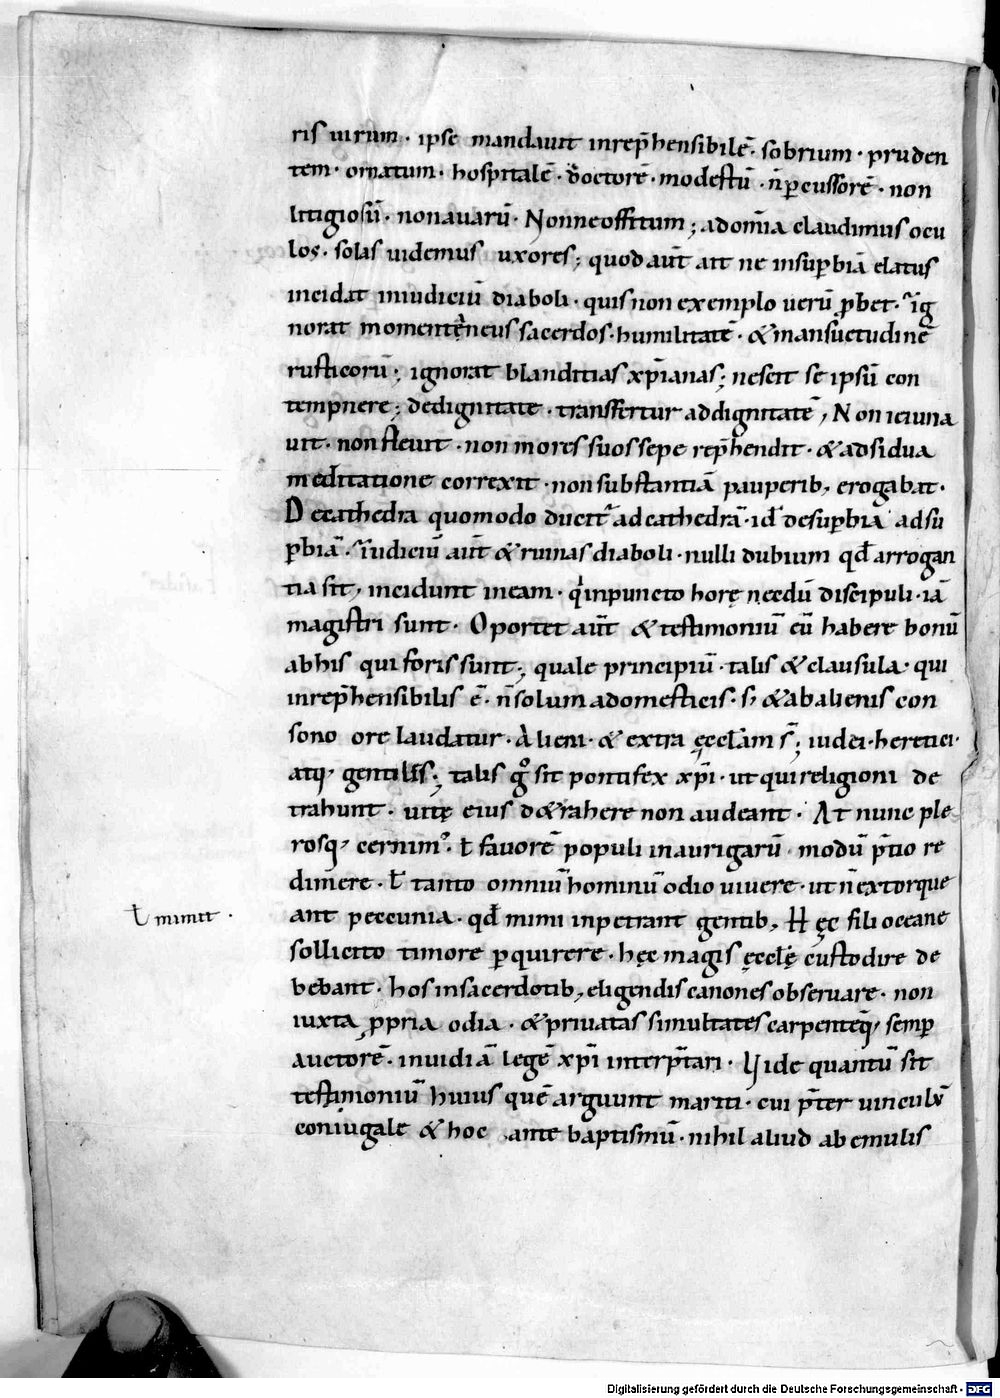 ris uirum · ipse mandauit inrep̄hensibilē · sobrium · pruden
tem · ornatum · hospitalē · doctorē · modestū · n̄ p̲cussorē · non
litigiosū · non auarū · Nonne offitum ; ad om̄ia claudimus ocu
los · solas uidemus uxores ; quod aūt ait ne in sup̲biā elatus
incidat in iudiciū diaboli · quis non exemplo uerū p̲bet · ig
norat momentaneus sacerdos · humilitatē · & mansuetudinē
rusticorū ; ignorat blanditias xp̄ianas ; nescit se ipsū con
tempnere ; de dignitate · transfertur ad dignitatē , Non ieiuna
uit · non fleuit · non mores suos sepe rep̄hendit · & adsidua
meditatione correxit · non substantiā pauperib; erogabat ·
De cathedra quomodo ducit᷑ ad cathedrā · id ÷ de sup̲bia ad su
p̲biā · Iudiciū aūt & ruinas diaboli · nulli dubium qđ arrogan
tia sit , incidunt in eam · qͥ in puncto horę necdū discipuli · iā
magistri sunt · Oportet aūt & testimoniū eū habere bonū
ab his qui foris sunt ; quale principiū · talis & clausula · qui
inrep̄hensibilis ē · n̄ solum a domesticis · s; & ab alienis con
sono ore laudatur · Alieni · & extra ęccl̄am s̄ ; iudei · heretici ·
atq; gentiles ; talis gͦ sit pontifex xp̄i · ut qui religioni de
trahunt · uitę eius d&rahere non audeant · At nunc ple
rosq; cernim᷒ · ł fauorē populi in aurigarū · modū p̄tio re
dimere · ł tanto omniū hominū odio uiuere · ut n̄ extorque
ant peccunia · qđ mimi inpetrant gentib; Hęc fili oceane
ł mimit ·
sollicito timore p̲quirere · hęc magis ęccl̄ę custodire de
bebant · hos in sacerdotib; eligendis canones obseruare · non
iuxta p̲pria odia · & priuatas simultates carpenteq; semp̲
auctorē · inuidiā legē xp̄i interp̄tari · Vide quantū sit
testimoniū huius quē arguunt mariti · cui p̄ter uinculū
coniugale & hoc ante baptismū · nihil aliud ab emulis
Digitalisierung gefördert durch die Deutsche Forschungsgemeinschaft - DFG